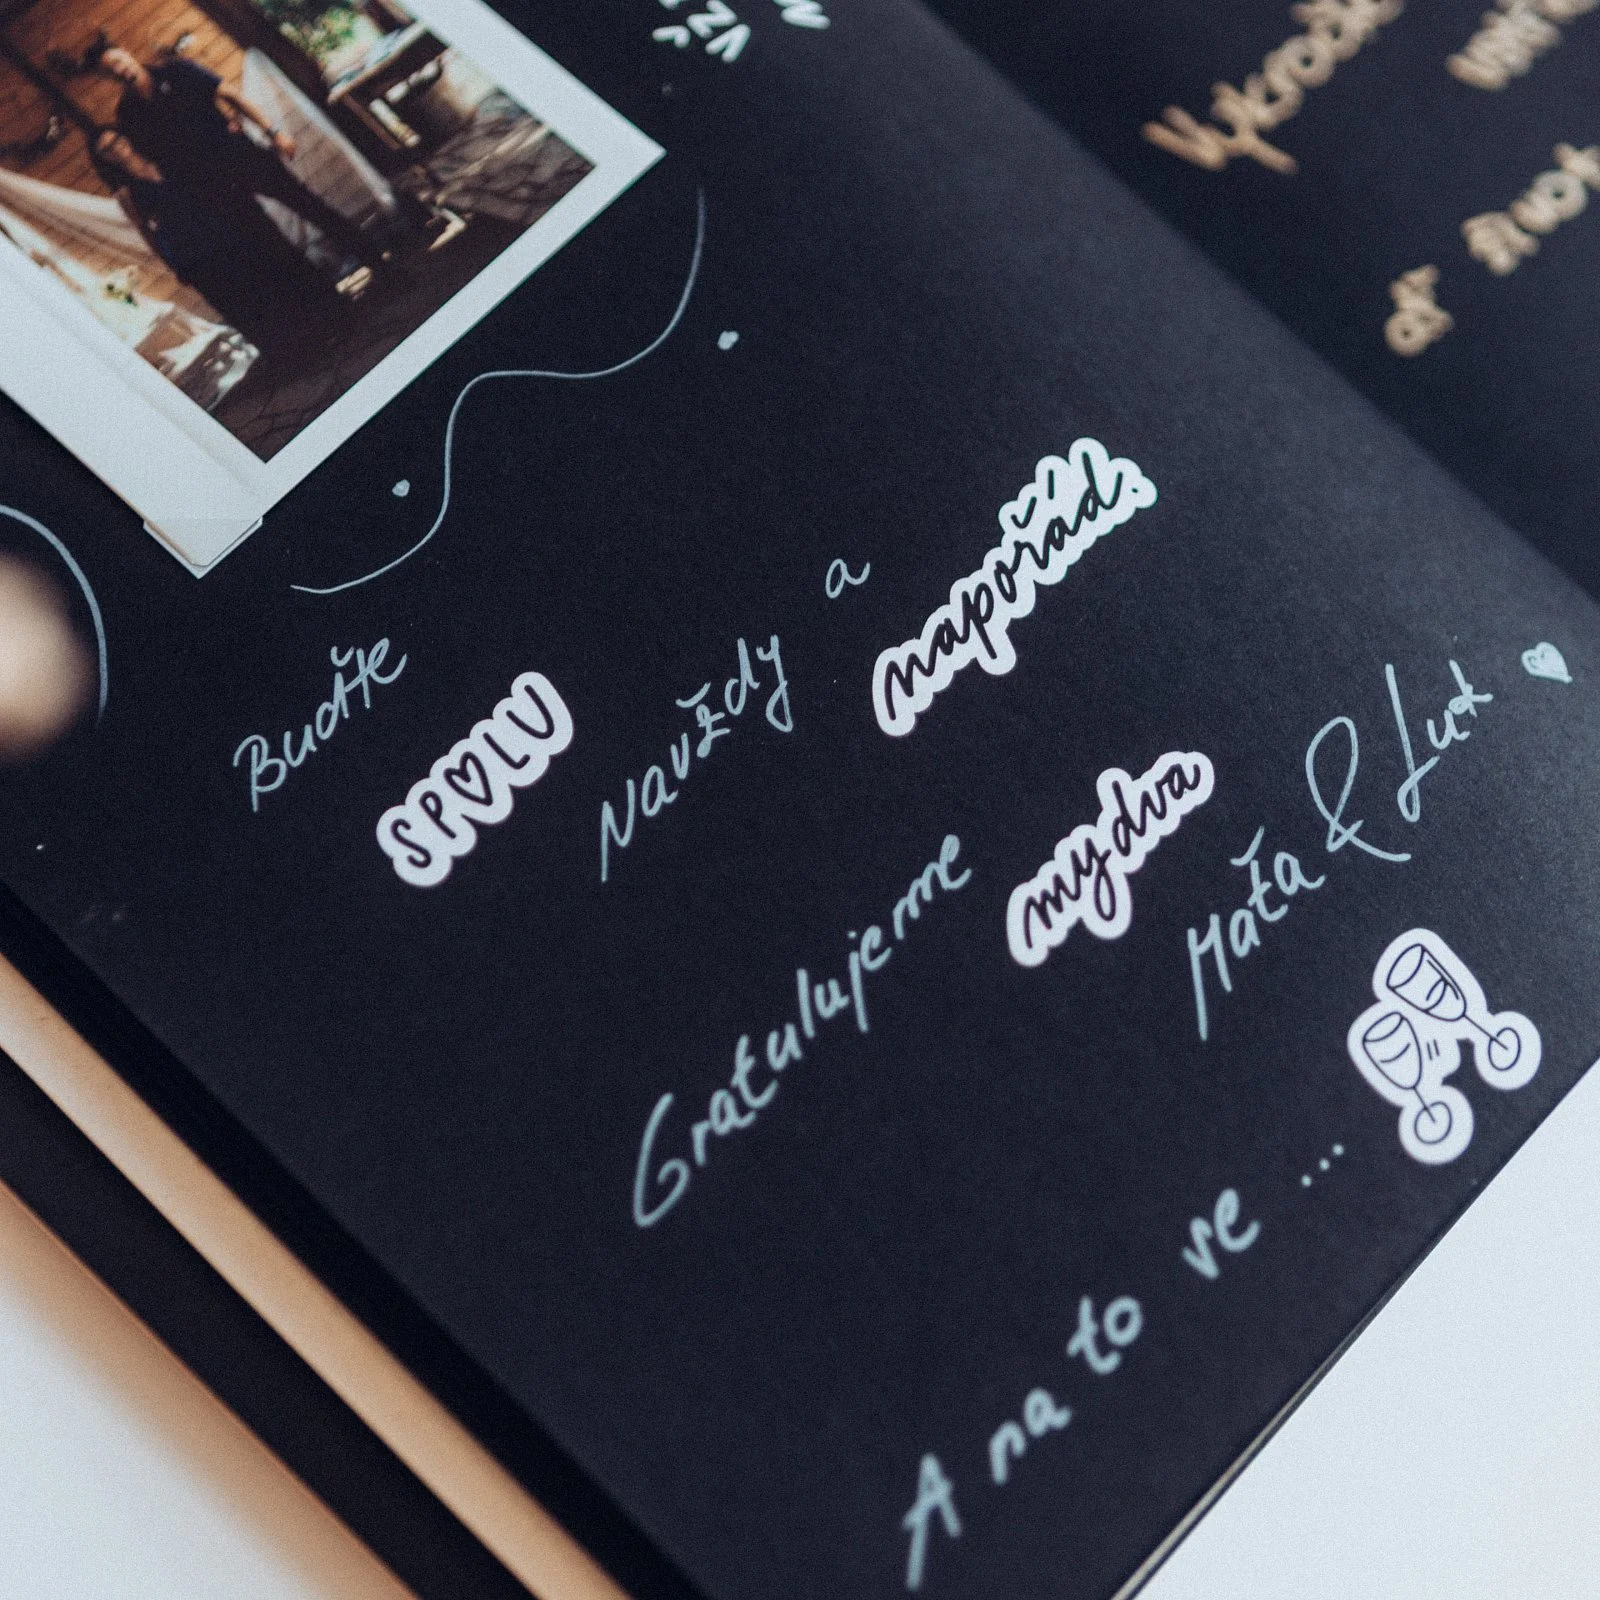 Buďte SPOLU Navždy a napořád.
Gratulujeme my dva Maťa & Luk
A na to ve ...